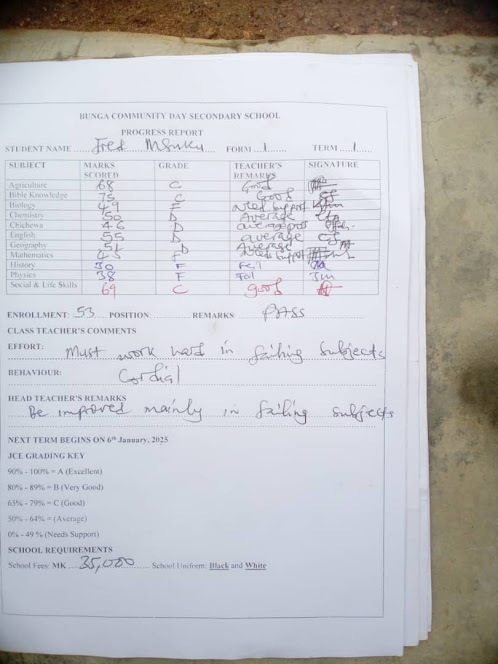 BUNGA COMMUNITY DAY SECONDARY SCHOOL
PROGRESS REPORT
STUDENT NAME Fred FORM 1 TERM 1
SUBJECT MARKS SCORED GRADE TEACHER'S REMARKS SIGNATURE
Agriculture 68 C Good
Bible Knowledge 75 C Good
Biology 49 F Need Support
Chemistry 50 D Average
Chichewa 46 D
English 55 D average
Geography 51 D Average
Mathematics 45 F Need Support
History 30 F Feil
Physics 38 F
Social & Life Skills 69 C good
ENROLLMENT: 53 POSITION: REMARKS: PASS
CLASS TEACHER'S COMMENTS
EFFORT: Must work hard in failing subjects
BEHAVIOUR: Cordial
HEAD TEACHER'S REMARKS
Be improved mainly in failing subjects
NEXT TERM BEGINS ON 6th January, 2025
JCE GRADING KEY
90% - 100% = A (Excellent)
80% - 89% = B (Very Good)
65% - 79% = C (Good)
50% - 64% = (Average)
0% - 49 % (Needs Support)
SCHOOL REQUIREMENTS
School Fees: MK 35,000 School Uniform: Black and White